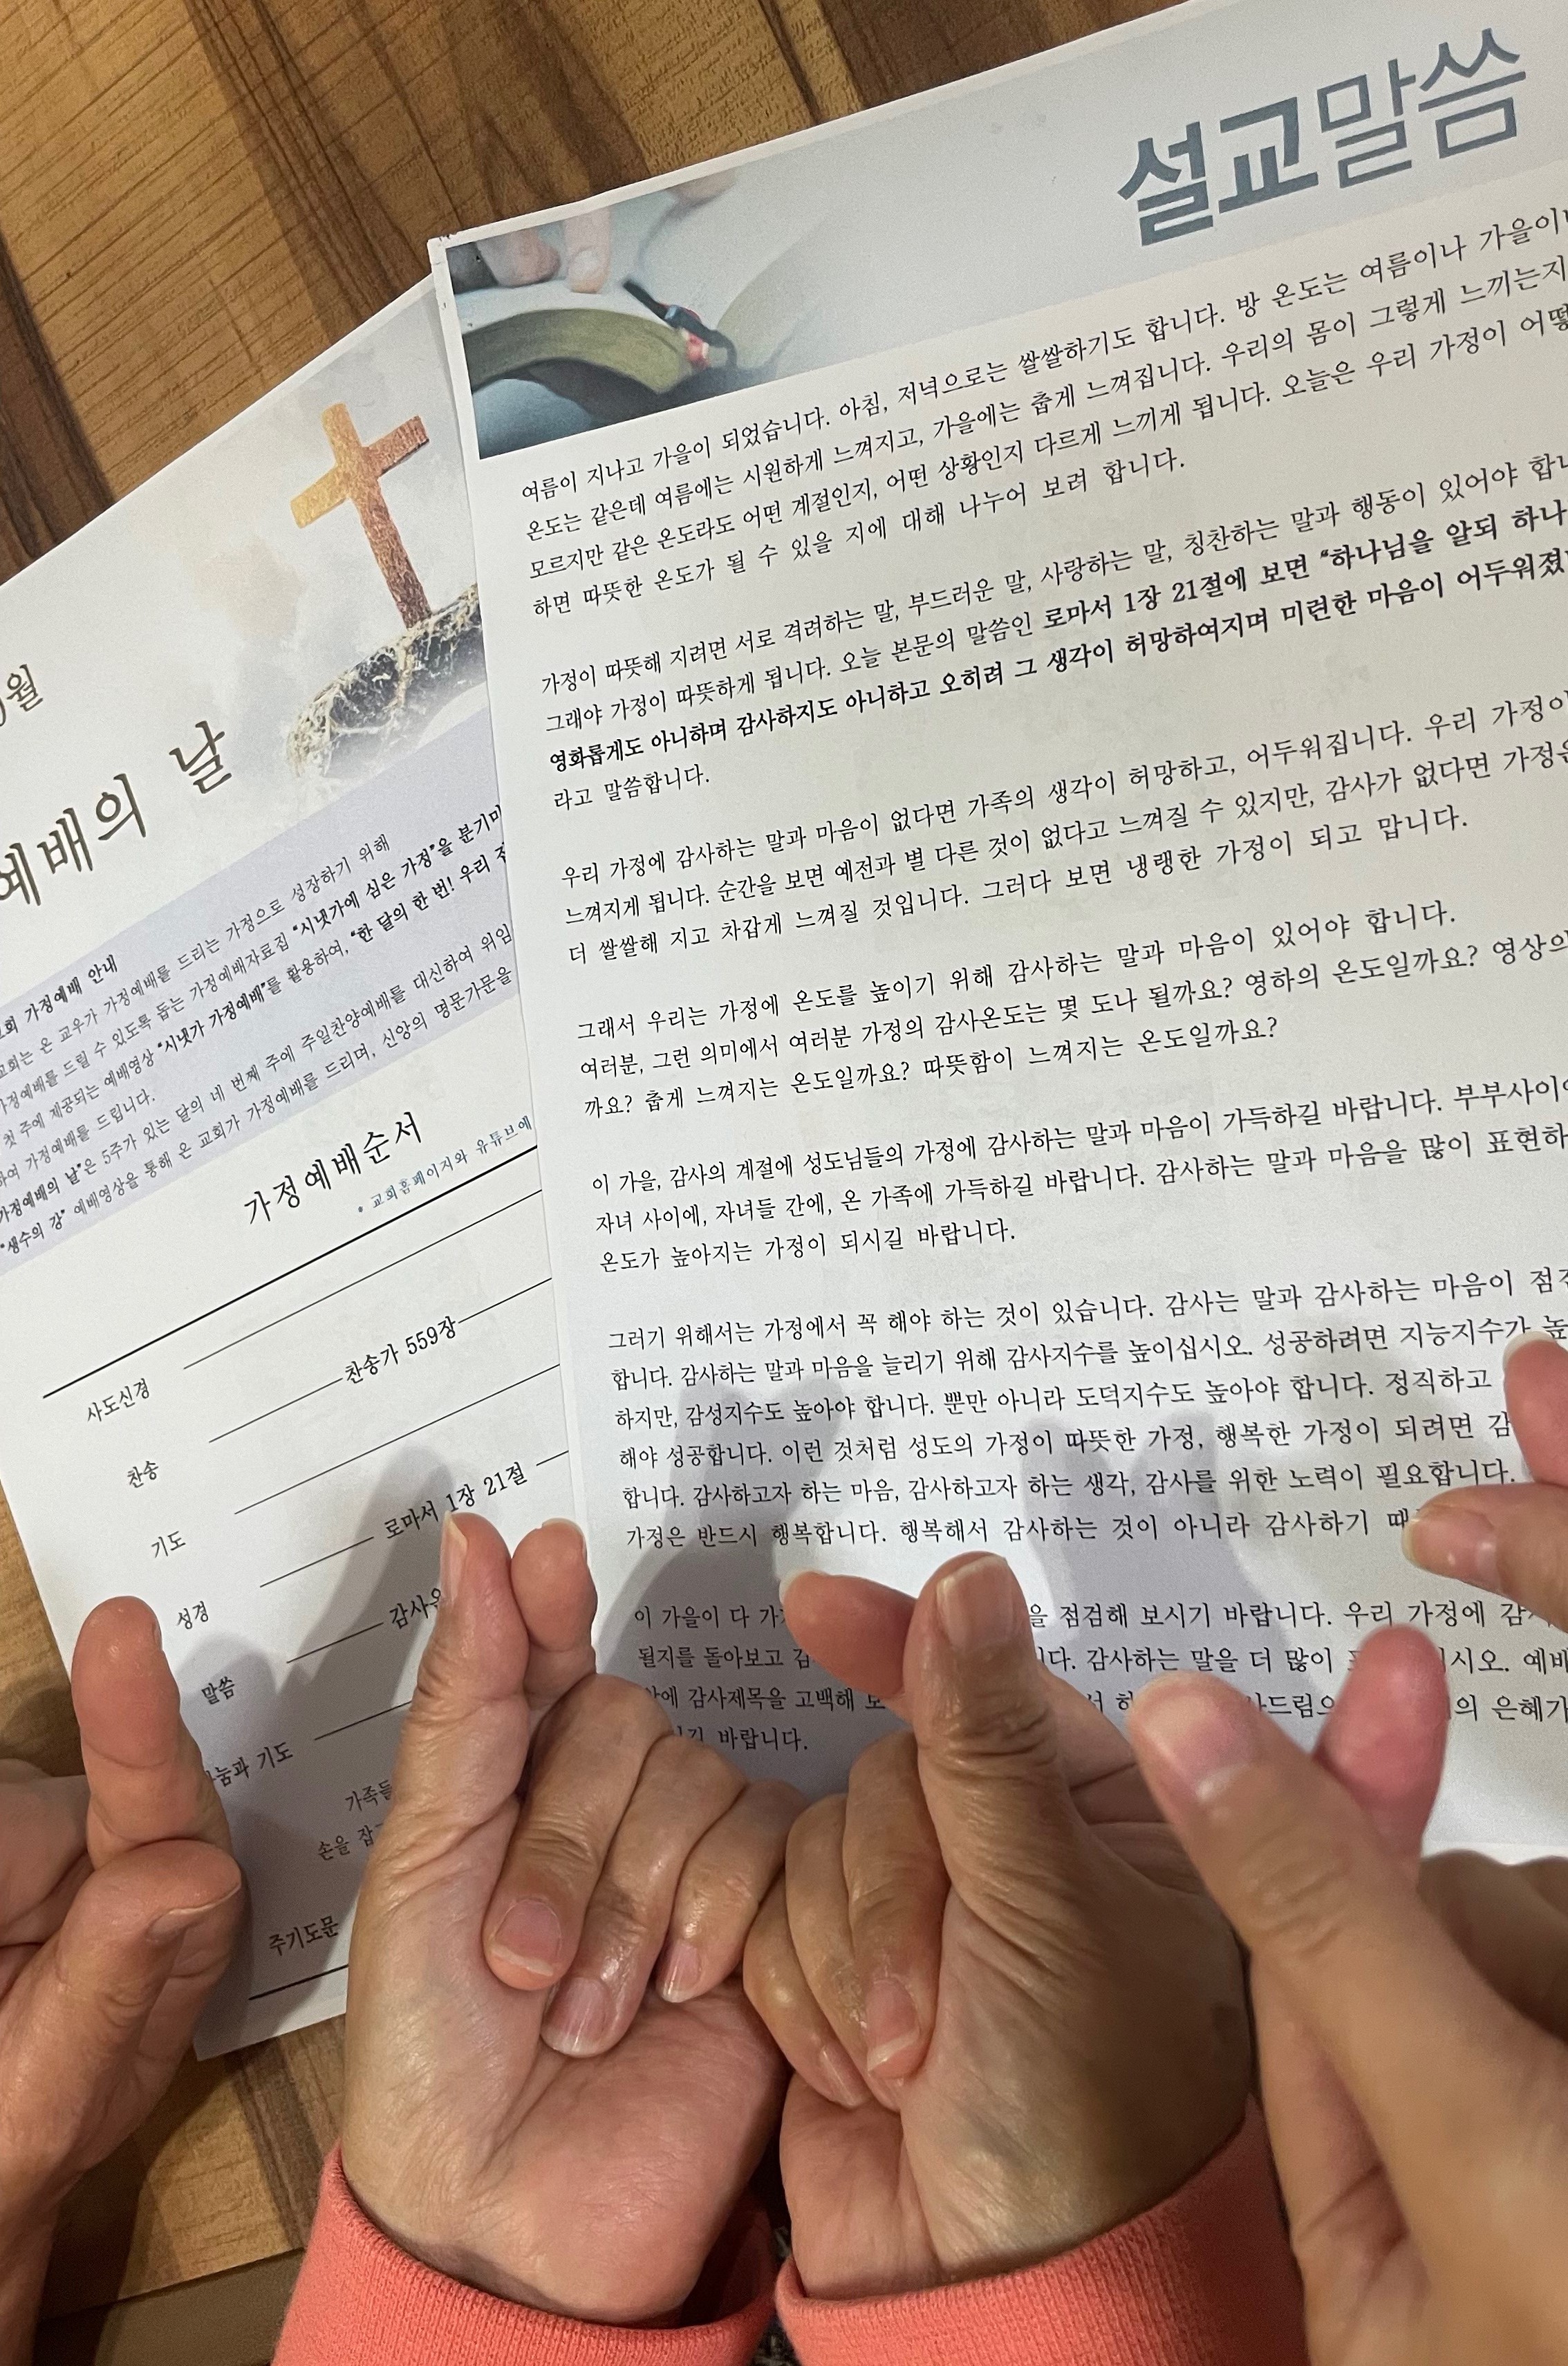 월
예배의 날
가정예배 안내
교회는 온 교우가 가정예배를 드리는 가정으로 성장하기 위해
가정예배를 드릴 수 있도록 돕는 가정예배자료집 “시냇가에 심은 가정”을 분기마
첫 주에 제공되는 예배영상 “시냇가 가정예배”를 활용하여, “한 달의 한 번! 우리
하여 가정예배를 드립니다.
가정예배의 날”은 5주가 있는 달의 네 번째 주에 주일찬양예배를 대신하여 위임
“생수의 강” 예배영상을 통해 온 교회가 가정예배를 드리며, 신앙의 명문가문을
가정예배순서
* 교회홈페이지와 유튜브에
사도신경
찬송 찬송가 559장
기도
성경 로마서 1장 21절
말씀 감사
기도
가족
손을
주기도문
설교말씀
여름이 지나고 가을이 되었습니다. 아침, 저녁으로는 쌀쌀하기도 합니다. 방 온도는 여름이나
온도는 같은데 여름에는 시원하게 느껴지고, 가을에는 춥게 느껴집니다. 우리의 몸이 그렇게 느끼는지
모르지만 같은 온도라도 어떤 계절인지, 어떤 상황인지 다르게 느끼게 됩니다. 오늘은 우리 가정이
하면 따뜻한 온도가 될 수 있을 지에 대해 나누어 보려 합니다.
가정이 따뜻해 지려면 서로 격려하는 말, 부드러운 말, 사랑하는 말, 칭찬하는 말과 행동이 있어야
그래야 가정이 따뜻하게 됩니다. 오늘 본문의 말씀인 로마서 1장 21절에 보면 “하나님을 알되
영화롭게도 아니하며 감사하지도 아니하고 오히려 그 생각이 허망하여지며 미련한 마음이 어두워졌
라고 말씀합니다.
우리 가정에 감사하는 말과 마음이 없다면 가족의 생각이 허망하고, 어두워집니다. 우리 가정이
느껴지게 됩니다. 순간을 보면 예전과 별 다른 것이 없다고 느껴질 수 있지만, 감사가 없다면 가정은
더 쌀쌀해 지고 차갑게 느껴질 것입니다. 그러다 보면 냉랭한 가정이 되고 맙니다.
그래서 우리는 가정에 온도를 높이기 위해 감사하는 말과 마음이 있어야 합니다.
여러분, 그런 의미에서 여러분 가정의 감사온도는 몇 도나 될까요? 영하의 온도일까요? 영상의
까요? 춥게 느껴지는 온도일까요? 따뜻함이 느껴지는 온도일까요?
이 가을, 감사의 계절에 성도님들의 가정에 감사하는 말과 마음이 가득하길 바랍니다. 부부사이에
자녀 사이에, 자녀들 간에, 온 가족에 가득하길 바랍니다. 감사하는 말과 마음을 많이 표현하
온도가 높아지는 가정이 되시길 바랍니다.
그러기 위해서는 가정에서 꼭 해야 하는 것이 있습니다. 감사는 말과 감사하는 마음이
합니다. 감사하는 말과 마음을 늘리기 위해 감사지수를 높이십시오. 성공하려면 지능지수가
하지만, 감성지수도 높아야 합니다. 뿐만 아니라 도덕지수도 높아야 합니다. 정직하고
해야 성공합니다. 이런 것처럼 성도의 가정이 따뜻한 가정, 행복한 가정이 되려면
합니다. 감사하고자 하는 마음, 감사하고자 하는 생각, 감사를 위한 노력이 필요합니다.
가정은 반드시 행복합니다. 행복해서 감사하는 것이 아니라 감사하기
이 가을이 다 점검해 보시기 바랍니다. 우리 가정에
될지를 돌아보고 감사하는 말을 더 많이 예배
감사제목을 고백해 은혜가
바랍니다.